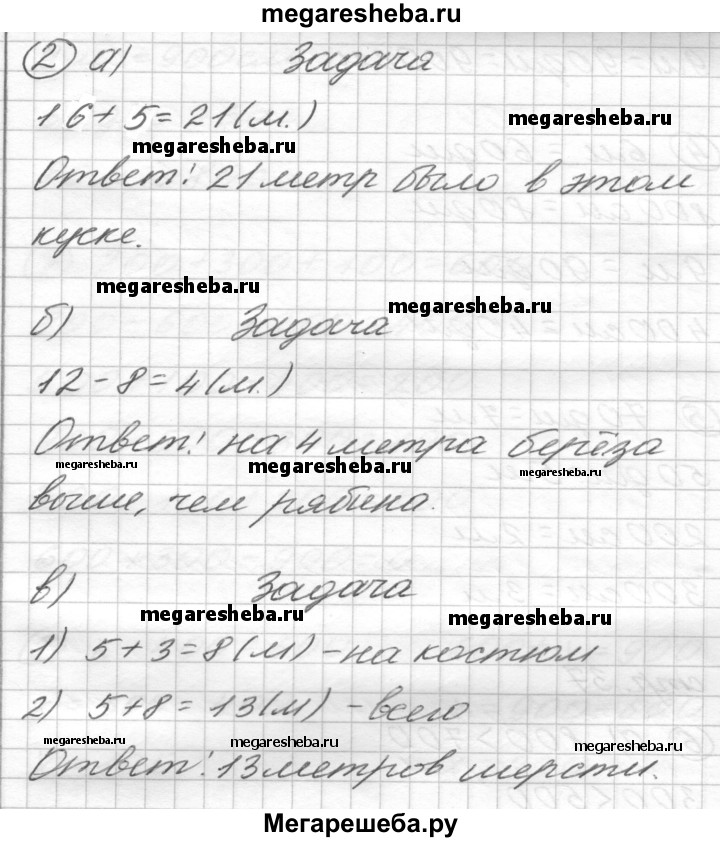 megaresheba.ru
2 а) Задача
16 + 5 = 21 (м.)
megaresheba.ru
megaresheba.ru
Ответ: 21 метр было в этом
куске.
megaresheba.ru
megaresheba.ru
б) Задача
12 - 8 = 4 (м.)
Ответ: на 4 метра берёза
megaresheba.ru
megaresheba.ru
megaresheba.ru
выше, чем рябина.
в) Задача
megaresheba.ru
megaresheba.ru
1) 5 + 3 = 8 (м) - на костюм
2) 5 + 8 = 13 (м) - всего
megaresheba.ru
megaresheba.ru
megaresheba.ru
Ответ: 13 метров шерсти.
Мегарешеба.ру